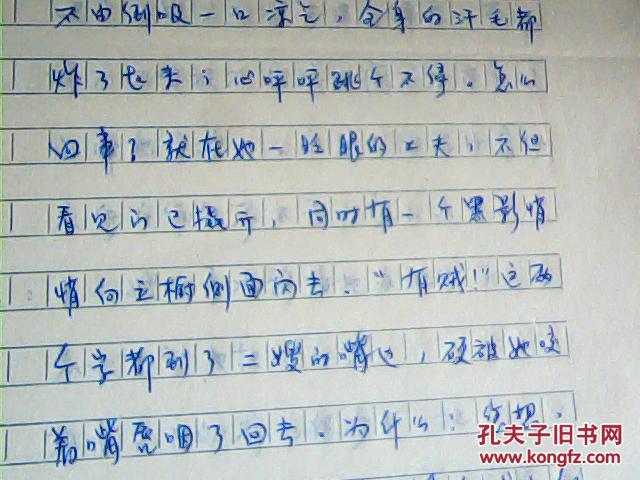 不由倒吸一口凉气,全身的汗毛都
炸了起来;心呼呼跳个不停。怎么
回事?就在她一眨眼的工夫,不但
看见门已撬开,同时有一个黑影悄
悄向立柜侧面闪去。“有贼!”这两
个字都到了二嫂的嘴边,硬被她咬
着嘴唇咽了回去。为什么?您想,
孔夫子旧书网
KONGFZ.COM